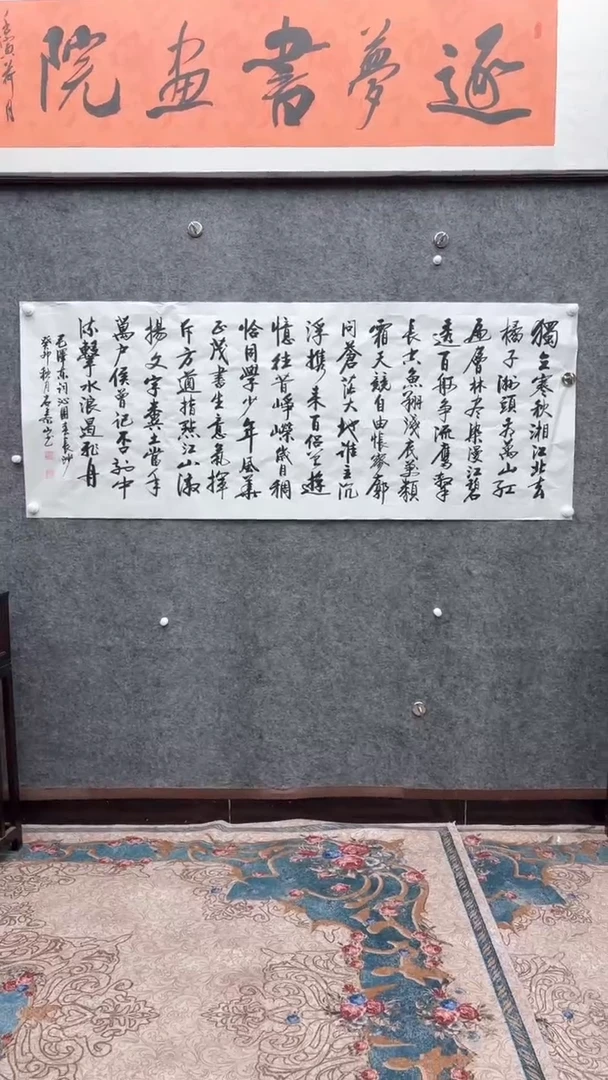 逐夢書畫院
壬寅荷月
獨立寒秋湘江北去
橘子洲頭看萬山紅
遍層林尽染漫江碧
透百舸争流鷹擊
長空魚翔浅底萬類
霜天競自由悵寥廓
问蒼茫大地谁主沉
浮携来百侣曾遊
憶往昔崢嶸歲月稠
恰同學少年風華
正茂書生意氣揮
斥方遒指點江山激
揚文字糞土當年
萬户侯曾记否到中
流擊水浪遏飛舟
毛澤东词沁园春長沙
癸卯秋月